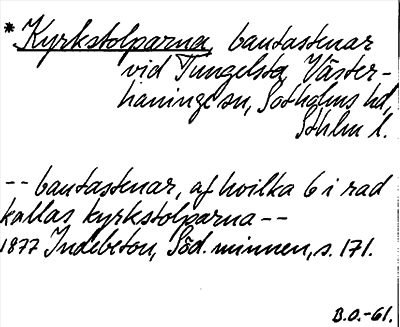 *Kyrkstolparna, bautastenar
vid Tungelsta, Väster-
haninge sn, Sotholms hd,
Sthlm l.
-- bautastenar, af hvilka 6 i rad
kallas kyrkstolparna --
1877 Indebetou, Söd. minnen, s. 171.
B.O.-61.